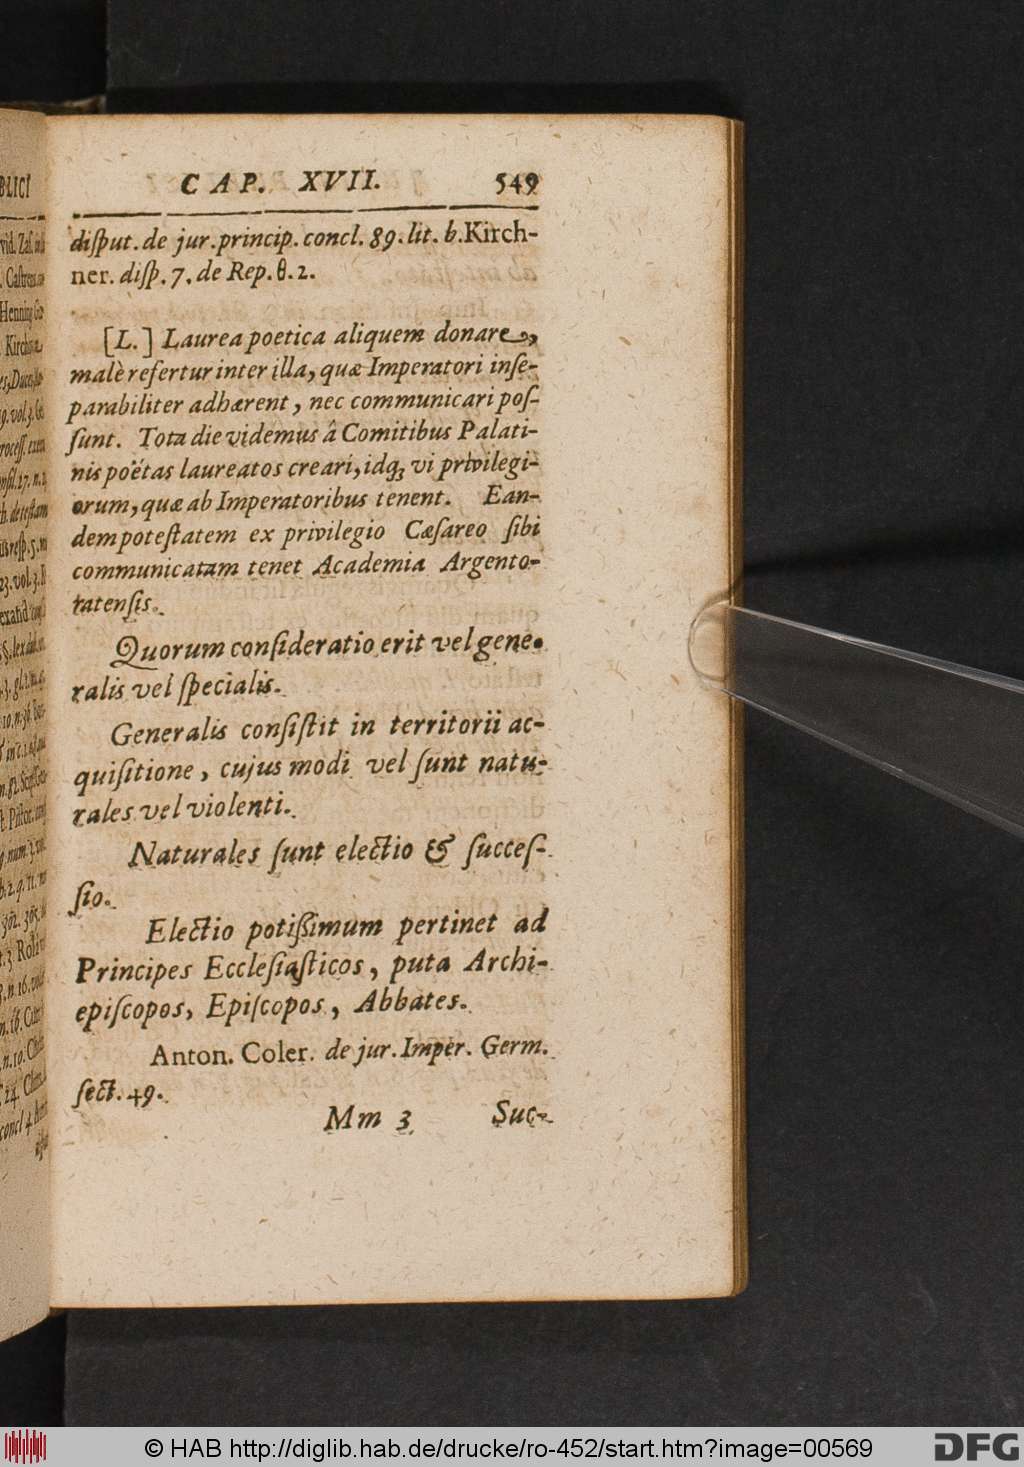 CAP. XVII. 549
diſput. de jur. princip. concl. 89. lit. b. Kirch-
ner. diſp. 7. de Rep. θ. 2.
[L.] Laurea poetica aliquem donare,
malè refertur inter illa, quæ Imperatori inſe-
parabiliter adhærent, nec communicari poſ-
ſunt. Tota die videmus â Comitibus Palati-
nis poëtas laureatos creari, idq́; vi privilegi-
orum, quæ ab Imperatoribus tenent. Ean-
dem poteſtatem ex privilegio Cæſareo ſibi
communicatam tenet Academia Argento-
ratenſis.
Quorum conſideratio erit vel gene-
ralis vel ſpecialis.
Generalis conſiſtit in territorii ac-
quiſitione, cujus modi vel ſunt natu-
rales vel violenti.
Naturales ſunt electio & ſucceſ-
ſio.
Electio potißimum pertinet ad
Principes Eccleſiaſticos, puta Archi-
epiſcopos, Epiſcopos, Abbates.
Anton. Coler. de jur. Imper. Germ.
ſect. 49.
Mm 3 Suc-
© HAB http://diglib.hab.de/drucke/ro-452/start.htm?image=00569
DFG